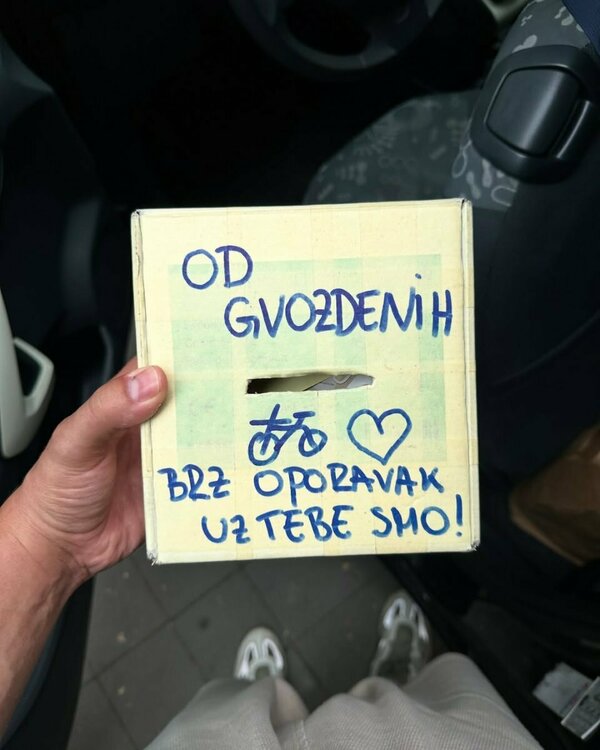 OD
GVOZDENIH
BRZ OPORAVAK
UZ TEBE SMO!